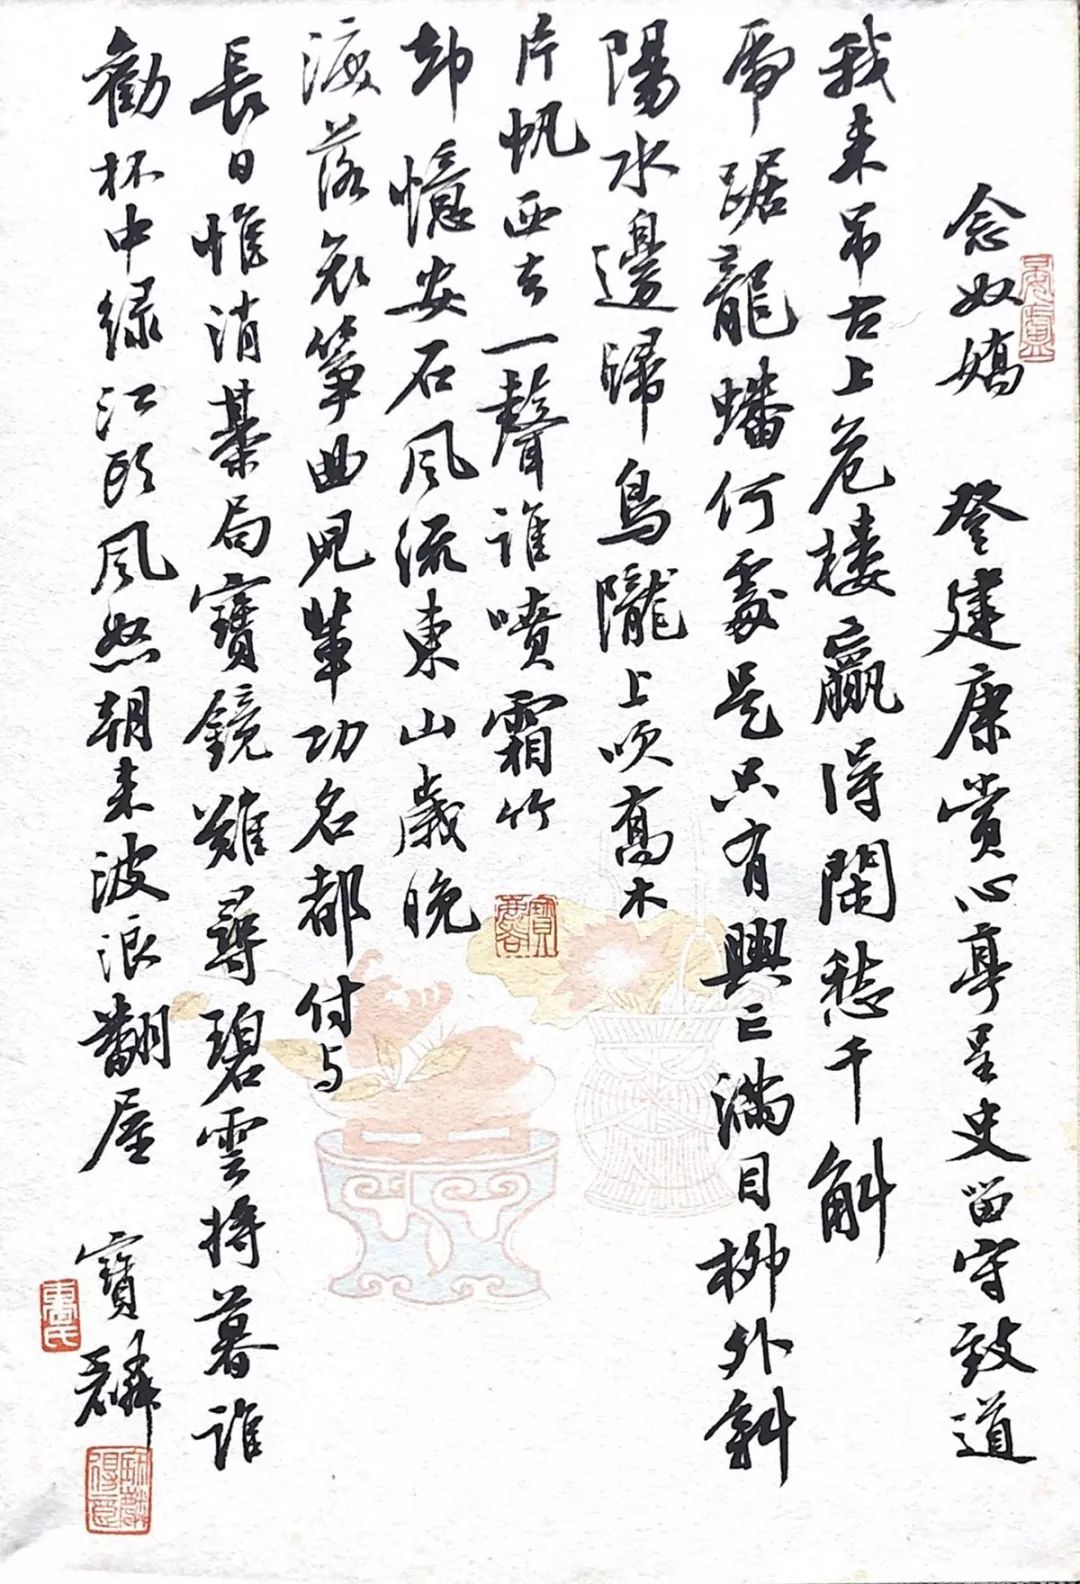 念奴嬌 登建康賞心亭呈史留守致道
我来吊古上危樓贏得閑愁千斛
虎踞龍蟠何處是只有興亡滿目柳外斜
陽水邊歸鳥隴上吹高木
片帆西去一聲誰噴霜竹
却憶安石風流東山歲晚
淚落哀筝曲兒輩功名都付与
長日惟消棊局寶鏡難尋碧雲將暮誰
勸杯中绿江頭風怒朝来波浪翻屋
寶麟